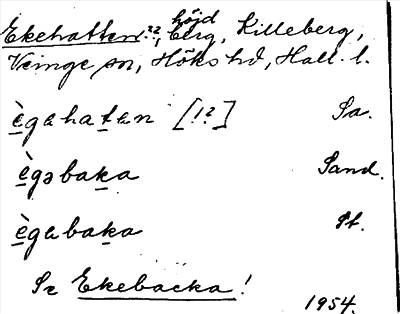 Ekehatten ??, höjd berg, Killeberg,
Veinge sn, Höks hd, Hall. l.
ègahatan [!?] Sa.
ègəbaka Sand.
ègabaka St.
Se Ekebacka!
1954.